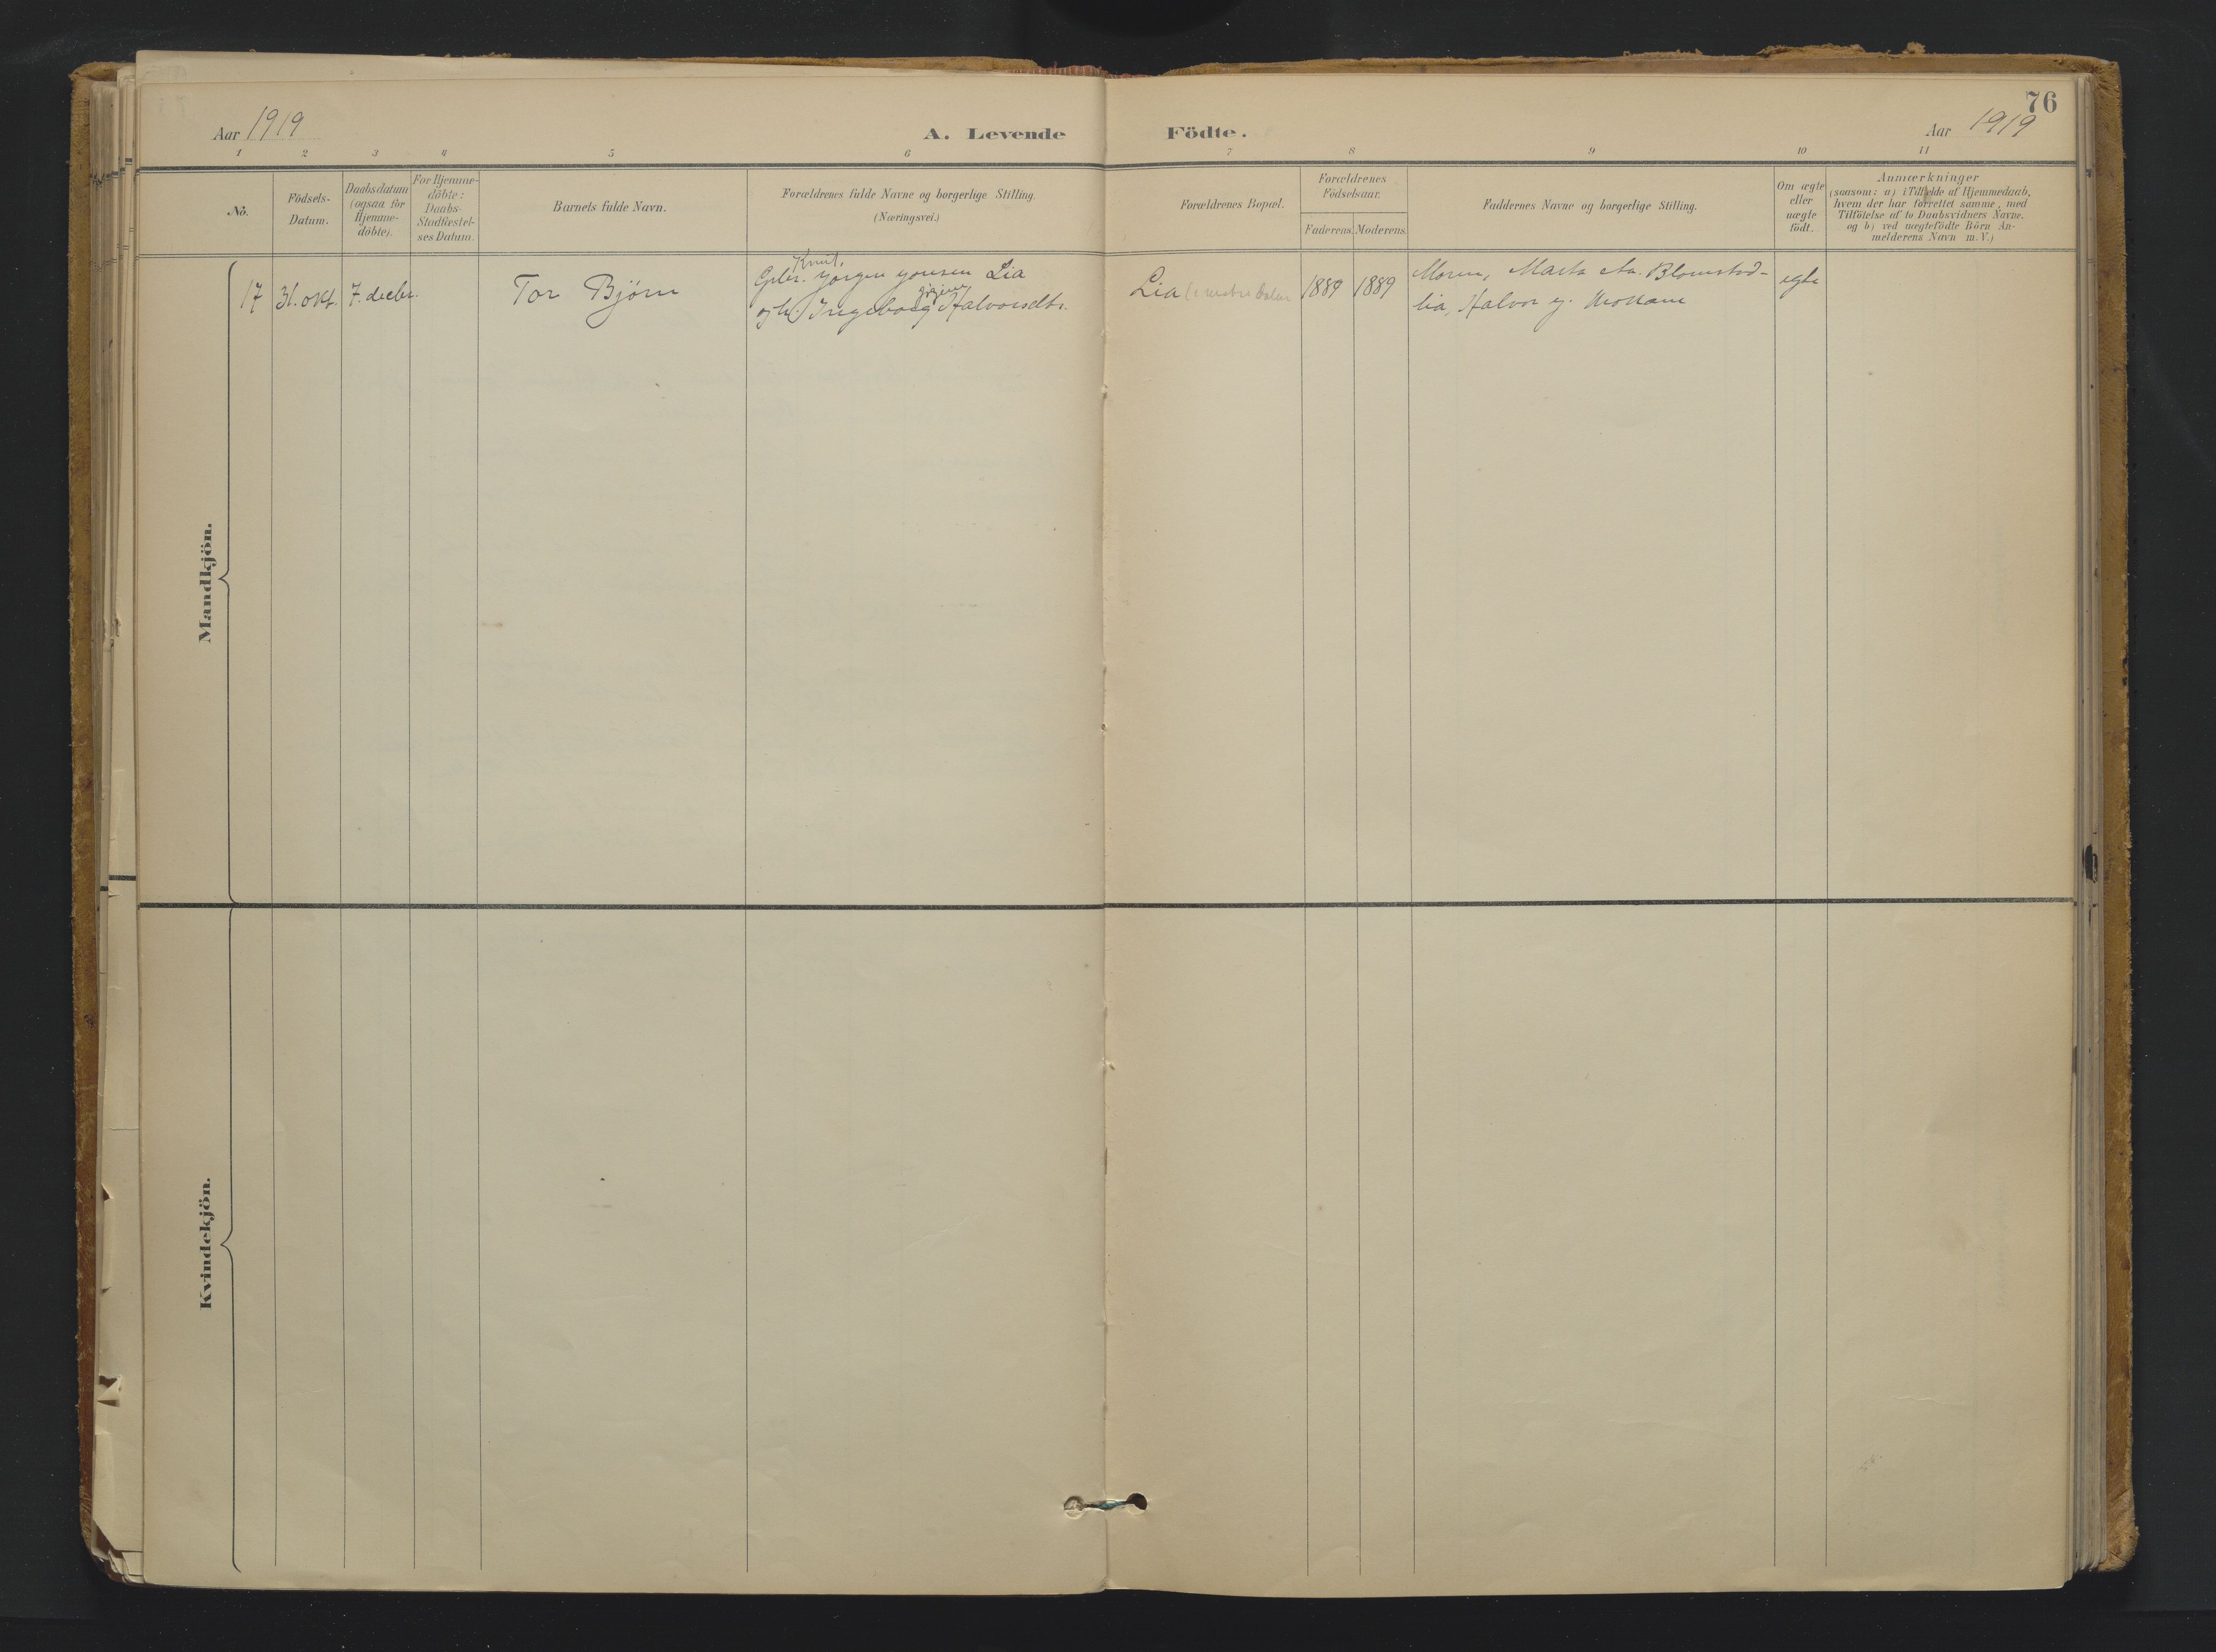 76
Aar 1919
A. Levende Födte.
Aar 1919
1 2 3 4 5 6 7 8 9 10 11
No.
Födsels-
Datum.
Daabsdatum
(ogsaa for
Hjemme-
döbte).
For Hjemme-
döbte:
Daabs-
Stadfæstel-
ses Datum.
Barnets fulde Navn.
Forældrenes fulde Navne og borgerlige Stilling.
(Næringsvei.)
Forældrenes Bopæl.
Forældrenes
Födselsaar.
Faderens. Moderens.
Faddernes Navne og borgerlige Stilling.
Om ægte
eller
uægte
födt.
Anmærkninger
(saasom: a) i Tilfælde af Hjemmedaab,
hvem der har forrettet samme, med
Tilföielse af to Daabsvidners Navne,
og b) ved uægtefödte Börn An-
melderens Navn m. V.)
Mandkjön.
17
31. okt.
7. decbr.
Tor Björn
Knut
Gbr. Jørgen Jonsen Lia
og h. Ingeborg Halvorsdtr.
Lia
1889
1889
Moren, Marta Blomstad-
lia, Halvor
egte
Kvindekjön.